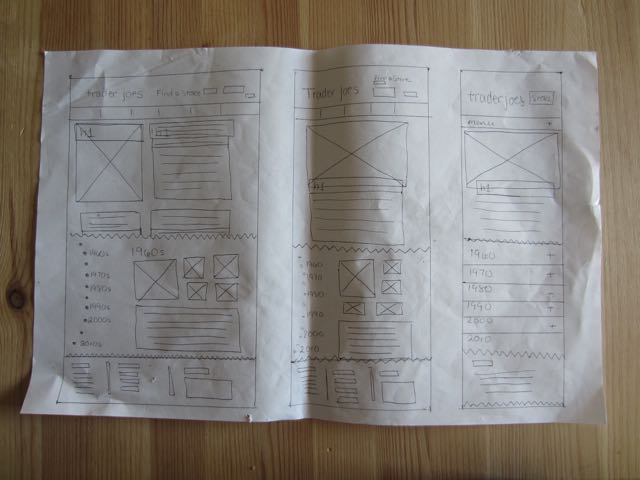 trader joes Find a store
h1 h1
1960s
1960s
1970s
1980s
1990s
2000s
2010s
Trader joes
h1
1960
1970
1980
1990
2000
2010
trader joe's
menu +
h1
1960 +
1970 +
1980
1990 +
2000 +
2010